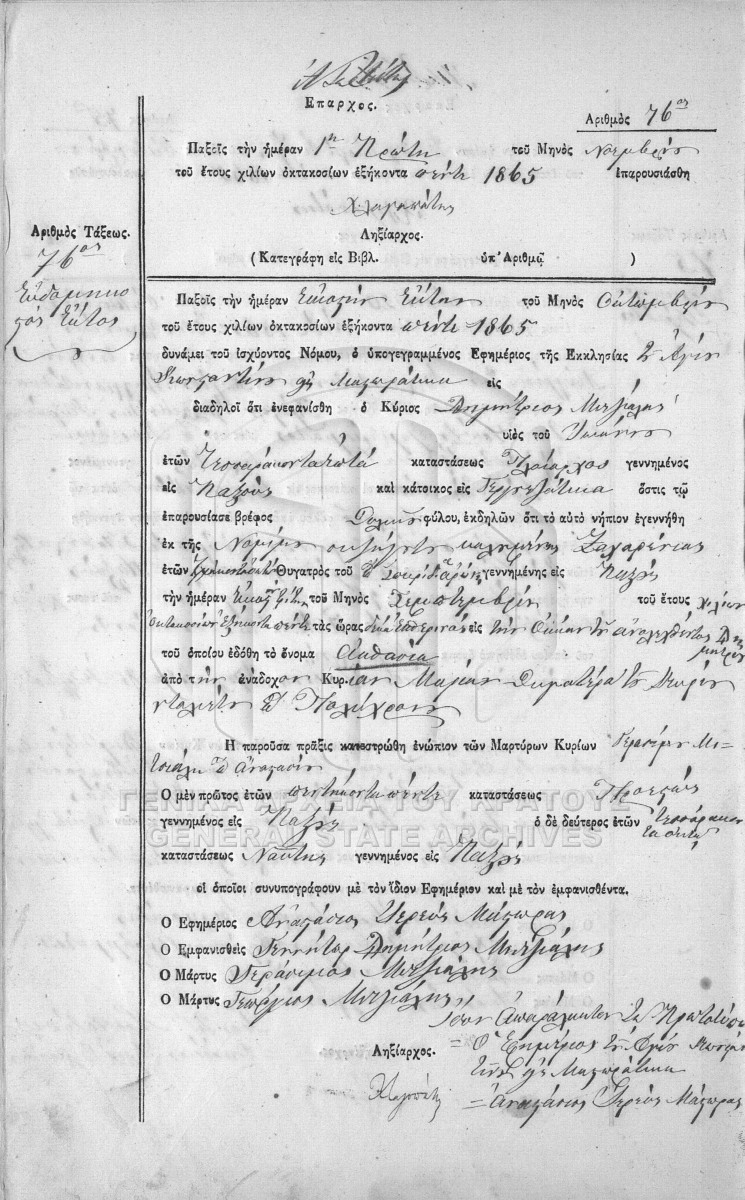 Έπαρχος.
Αριθμὸς 76ος
Παξοῖς τὴν ἡμέραν 1η Πρώτη τοῦ Μηνὸς Νοεμβρίου
τοῦ ἔτους χιλίων ὀκτακοσίων ἑξήκοντα πέντε 1865 ἐπαρουσιάσθη
Ληξίαρχος.
(Κατεγράφη εἰς Βιβλ. ὑπ' Ἀριθμῷ )
Ἀριθμὸς Τάξεως.
76ος
Ἑβδομηκο
στὸς Ἕκτος
Παξοῖς τὴν ἡμέραν Εἰκοστὴν Ἕκτην τοῦ Μηνὸς Ὀκτωμβρίου
τοῦ ἔτους χιλίων ὀκτακοσίων ἑξήκοντα πέντε 1865
δυνάμει τοῦ ἰσχύοντος Νόμου, ὁ ὑπογεγραμμένος Ἐφημέριος τῆς Ἐκκλησίας τοῦ Ἁγίου
Κωνσταντίνου εἰς Μαζωράτικα εἰς
διαδηλοῖ ὅτι ἐνεφανίσθη ὁ Κύριος Δημήτριος Μιτζιάλης
υἱὸς τοῦ Ἰωάννου
ἐτῶν Τεσσαρακονταεπτά καταστάσεως Πλοίαρχος γεννημένος
εἰς Παξοὺς καὶ κάτοικος εἰς ὅστις τῷ
ἐπαρουσίασε βρέφος φύλου, ἐκδηλῶν ὅτι τὸ αὐτὸ νήπιον ἐγεννήθη
ἐκ τῆς Νομίμου συζύγου καλουμένης Ζαχαρένιας
ἐτῶν θυγατρὸς τοῦ γεννημένης εἰς Παξοὺς
τὴν ἡμέραν τοῦ Μηνὸς Σεπτεμβρίου τοῦ ἔτους χιλίων
ὀκτακοσίων ἑξήκοντα πέντε τὰς ὥρας δέκα ἑσπερινὰς εἰς τὴν Οἰκίαν τοῦ ἀναλεχθέντος Δη
μητρίου
τοῦ ὁποίου ἐδόθη τὸ ὄνομα Ἀκθασία
ἀπὸ τὴν ἀνάδοχον Κυρίαν Μαρίαν Θυγατέρα τοῦ
Πολύχρονη
Ἡ παροῦσα πρᾶξις κατεστρώθη ἐνώπιον τῶν Μαρτύρων Κυρίων Γερασίμου Μι-
τσιάλη ἀναστασίου
Ὁ μὲν πρῶτος ἐτῶν πεντήκοντα πέντε καταστάσεως
γεννημένος εἰς Παξοὺς ὁ δὲ δεύτερος ἐτῶν Τεσσαράκον
τα
καταστάσεως Ναύτης γεννημένος εἰς Παξοὺς
οἱ ὁποῖοι συνυπογράφουν μὲ τὸν ἴδιον Ἐφημέριον καὶ μὲ τὸν ἐμφανισθέντα.
Ὁ Ἐφημέριος Ἀναστάσιος Ἱερεὺς Μάζωρας
Ὁ Ἐμφανισθεὶς Γεννήτωρ Δημήτριος Μιτζιάλης
Ὁ Μάρτυς Γεράσιμος Μιτζιάλης
Ὁ Μάρτυς Γεώργιος Μιτζιάλης
ἴσον ἀπαράλλακτον τοῦ Πρωτοτύπου
Ὁ Ἐφημέριος τοῦ Ἁγίου Κωνσταν
τίνου εἰς Μαζωράτικα
Ληξίαρχος.
Ἀναστάσιος Ἱερεὺς Μάζωρας
ΓΕΝΙΚΑ ΑΡΧΕΙΑ ΤΟΥ ΚΡΑΤΟΥΣ
GENERAL STATE ARCHIVES